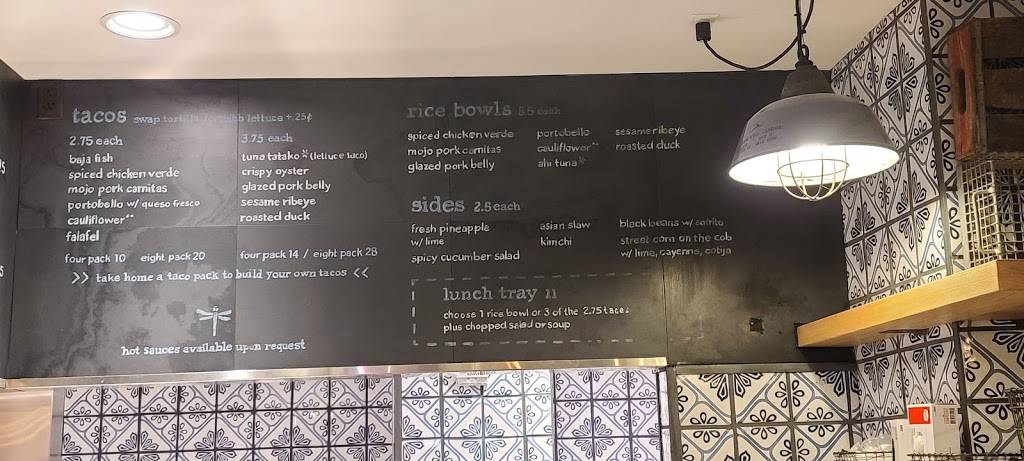 tacos swap tortilla for bibb lettuce +.25¢
2.75 each
baja fish
spiced chicken verde
mojo pork carnitas
portobello w/ queso fresco
cauliflower**
falafel
four pack 10 eight pack 20
3.75 each
tuna tatako * (lettuce taco)
crispy oyster
glazed pork belly
sesame ribeye
roasted duck
four pack 14 / eight pack 28
>> take home a taco pack to build your own tacos <<
hot sauces available upon request
rice bowls 8.5 each
spiced chicken verde
mojo pork carnitas
glazed pork belly
portobello
cauliflower**
ahi tuna*
sesame ribeye
roasted duck
sides 2.5 each
fresh pineapple
w/ lime
spicy cucumber salad
asian slaw
kimchi
black beans w/ sofrito
street corn on the cob
w/ lime, cayenne, cotija
lunch tray 11
choose 1 rice bowl or 3 of the 2.75 tacos
plus chopped salad or soup